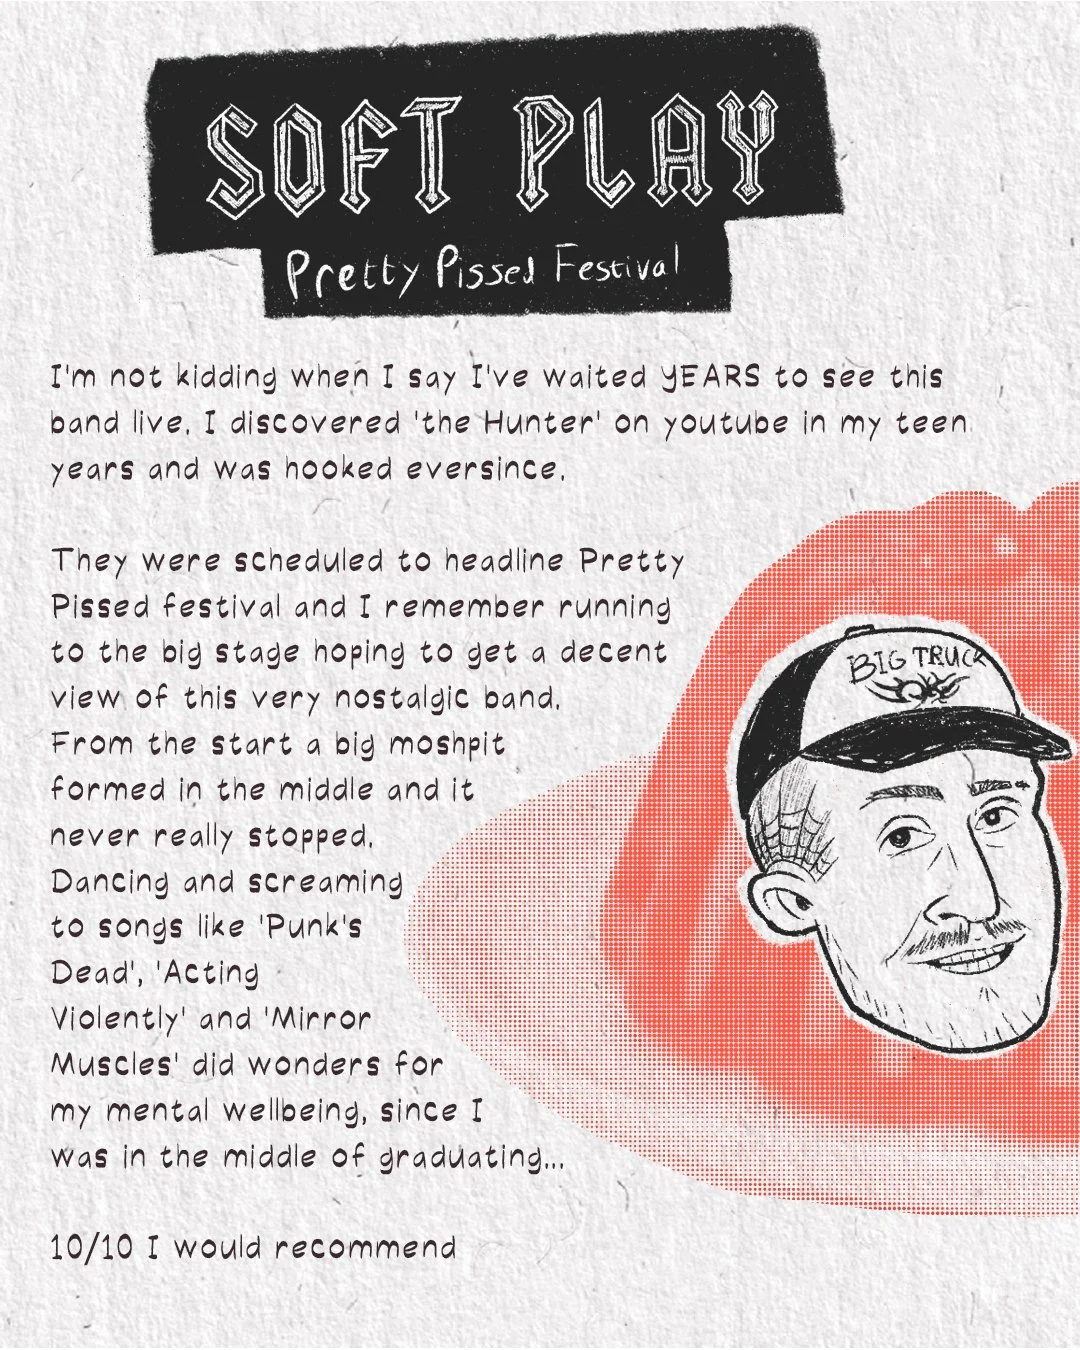 SOFT PLAY
Pretty Pissed Festival
I'm not kidding when I say I've waited YEARS to see this
band live. I discovered 'the Hunter' on youtube in my teen
years and was hooked eversince.
They were scheduled to headline Pretty
Pissed festival and I remember running
to the big stage hoping to get a decent
view of this very nostalgic band.
From the start a big moshpit
formed in the middle and it
never really stopped.
Dancing and screaming
to songs like 'Punk's
Dead', 'Acting
Violently' and 'Mirror
Muscles' did wonders for
my mental wellbeing, since I
was in the middle of graduating...
10/10 I would recommend
BIG TRUCK